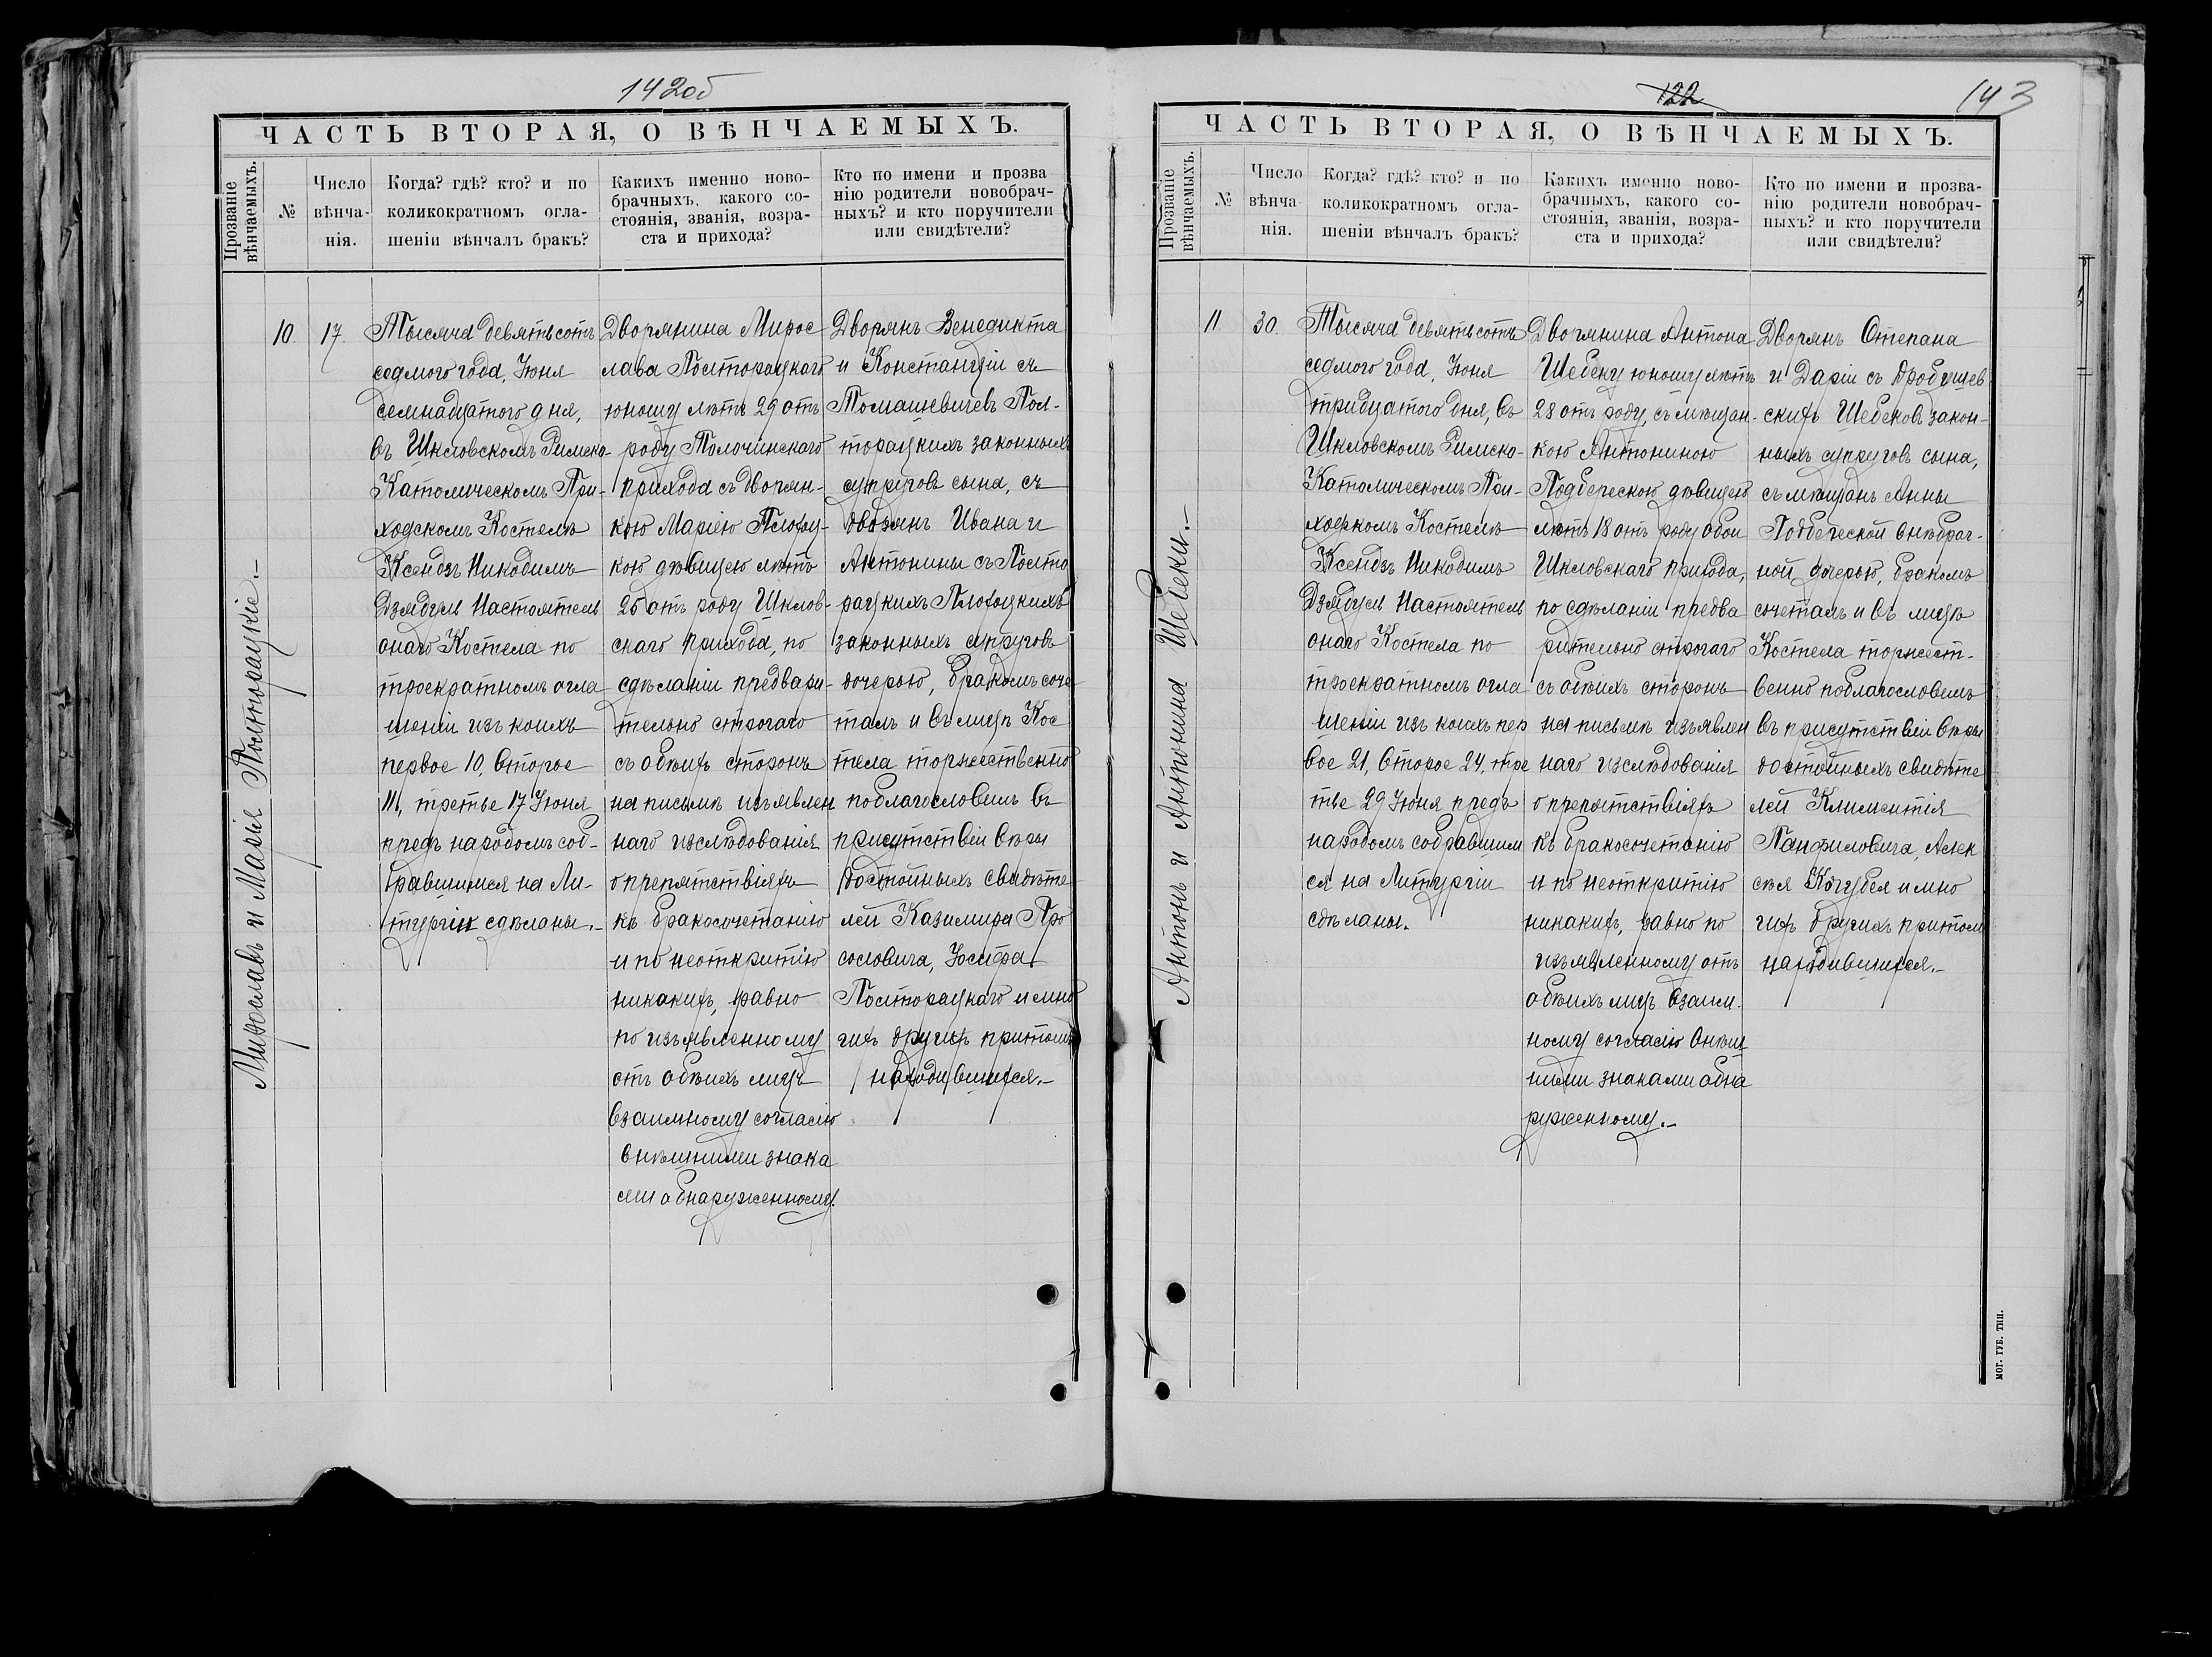 142об
ЧАСТЬ ВТОРАЯ, О ВѢНЧАЕМЫХЪ.
Прозваніе вѣнчаемыхъ.
№
Число
вѣнча-
нія.
Когда? гдѣ? кто? и по
коликократномъ огла-
шеніи вѣнчалъ бракъ?
Какихъ именно ново-
брачныхъ, какого со-
стоянія, званія, возра-
ста и прихода?
Кто по имени и прозва
нію родители новобрач-
ныхъ? и кто поручители
или свидѣтели?
Мирославъ и Марія Полторацкіе.-
10.
17.
Тысяча девятьсотъ
седмого года, Юня
семнадцатого дня,
въ Шкловскомъ Римско-
Католическомъ При-
ходскомъ Костелѣ
Ксендзъ Никодимъ
Дзябуль Настоятель
онаго Костела по
троекратномъ огла
шеніи изъ коихъ
первое 10, второе
11, третье 17 Юня
предъ народомъ соб-
равшимся на Ли-
тургіи сдѣланы.-
Дворянина Мирос
лава Полторацкого
юношу лѣтъ 29 отъ
роду Толочинскаго
прихода съ дворян-
кою Маріею Плохоц-
кою дѣвицею лѣтъ
25 отъ роду Шклов-
скаго прихода, по
сдѣланіи предвари-
тельно строгаго
съ обѣихъ сторонъ
на письмѣ изъявлен
наго изслѣдованія
о препятствіяхъ
къ бракосочетанію
и по неоткритію
никакихъ, равно
по изъявленному
отъ обѣихъ лицъ
взаимному согласію
внѣшними знака
ми обнаруженному.
Дворянъ Венедикта
и Констанціи съ
Томашевичевъ Пол-
торацкихъ законныхъ
супруговъ сына, съ
дворянъ Ивана и
Антонины съ Полто
рацкихъ Плохоцкихъ
законныхъ супруговъ
дочерью, бракомъ соче
талъ и въ лицѣ Кос
тела торжественно
поблагословилъ въ
присутствіи вѣры
достойныхъ свидѣте
лей Казимира Про
сосовича, Юсифа
Полторацкаго и мно
гихъ другихъ притомъ
находившихся.-
122
143
ЧАСТЬ ВТОРАЯ, О ВѢНЧАЕМЫХЪ.
Прозваніе вѣнчаемыхъ.
№
Число
вѣнча
нія.
Когда? гдѣ? кто? и по
коликократномъ огла-
шеніи вѣнчалъ бракъ?
Какихъ именно ново-
брачныхъ, какого со-
стоянія, званія, возра-
ста и прихода?
Кто по имени и прозва-
нію родители новобрач-
ныхъ? и кто поручители
или свидѣтели?
Антонъ и Антонина Шебеки.-
11.
30.
Тысяча девятьсотъ
седмого года, Юня
тридцатого дня, въ
Шкловскомъ Римско-
Католическомъ При-
ходскомъ Костелѣ
Ксендзъ Никодимъ
Дзябуль Настоятель
онаго Костела по
троекратномъ огла
шеніи изъ коихъ пер
вое 21, второе 24, тре
тье 29 Юня предъ
народомъ собравшим
ся на Литургіи
сдѣланы.
Дворянина Антона
Шебеку юношу лѣтъ
28 отъ роду, съ мѣщан-
кою Антониною
Подберескою дѣвицею
лѣтъ 18 отъ роду обои
Шкловскаго прихода,
по сдѣланіи предва
рительно строгаго
съ обѣихъ сторонъ
на письмѣ изъявлен
наго изслѣдованія
о препятствіяхъ
къ бракосочетанію
и по неоткритію
никакихъ, равно по
изъявленному отъ
обѣихъ лицъ взаим-
ному согласію внѣш
ними знаками обна
руженному.-
Дворянъ Степана
и Даріи съ Дробушев
скихъ Шебековъ закон-
ныхъ супруговъ сына,
съ мѣщанъ Анны
Подберезской внѣбрач-
ной дочерью, бракомъ
сочеталъ и въ лицѣ
Костела торжест-
венно поблагословилъ
въ присутствіи вѣры
достойныхъ свидѣте
лей Климентія
Панфиловича, Алек
сѣя Кочубея и мно
гихъ другихъ притомъ
находившихся.-
МОГ. ГУБ. ТИП.